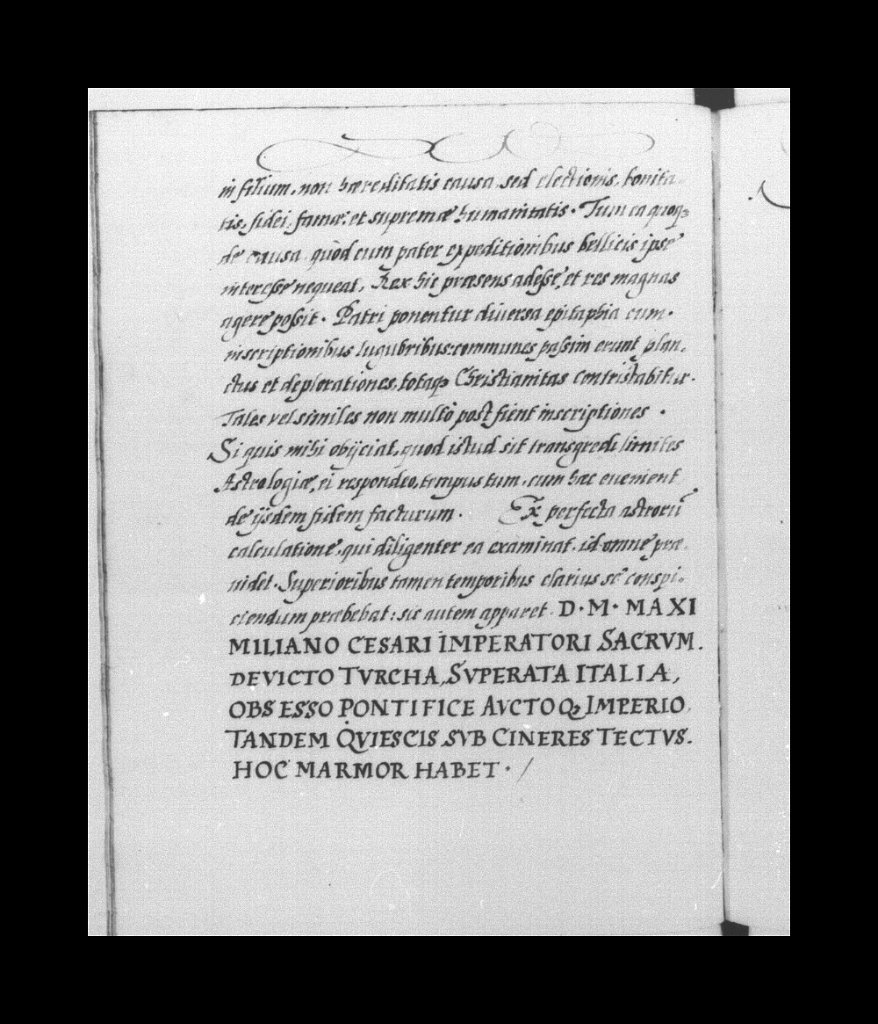 in filium, non hæreditatis causa, sed electionis, bonita-
tis, fidei, famæ, et supremæ humanitatis. Tum ea quoqꝫ
de causa, quòd cum pater expeditionibus bellicis ipse
interesse nequeat, Rex hic præsens adesse, et res magnas
agere possit. Patri ponentur diuersa epitaphia cum
inscriptionibus lugubribus: communes passim erunt plan-
ctus et deplorationes, totaqꝫ Christianitas contristabitur.
Tales vel similes non multò post fient inscriptiones.
Si quis mihi obijciat, quod istud sit transgredi limites
Astrologiæ, ei respondeo, tempus tum, cum hæc euenient
de ijsdem fidem facturum. Ex perfecta astrorū
calculatione, qui diligenter ea examinat, id omne præ-
uidet. Superioribus tamen temporibus clarius se conspi-
ciendum præbebat: sic autem apparet. D. M. MAXI
MILIANO CESARI IMPERATORI SACRVM.
DEVICTO TVRCHA, SVPERATA ITALIA,
OBSESSO PONTIFICE AVCTOQꝫ IMPERIO
TANDEM QVIESCIS SVB CINERES TECTVS.
HOC MARMOR HABET. /